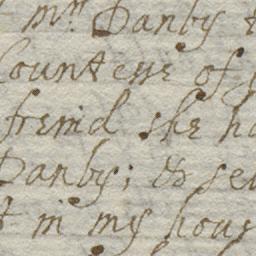 mrs Danby
Countesse of
freind she ha
Danby; & se
in my hous